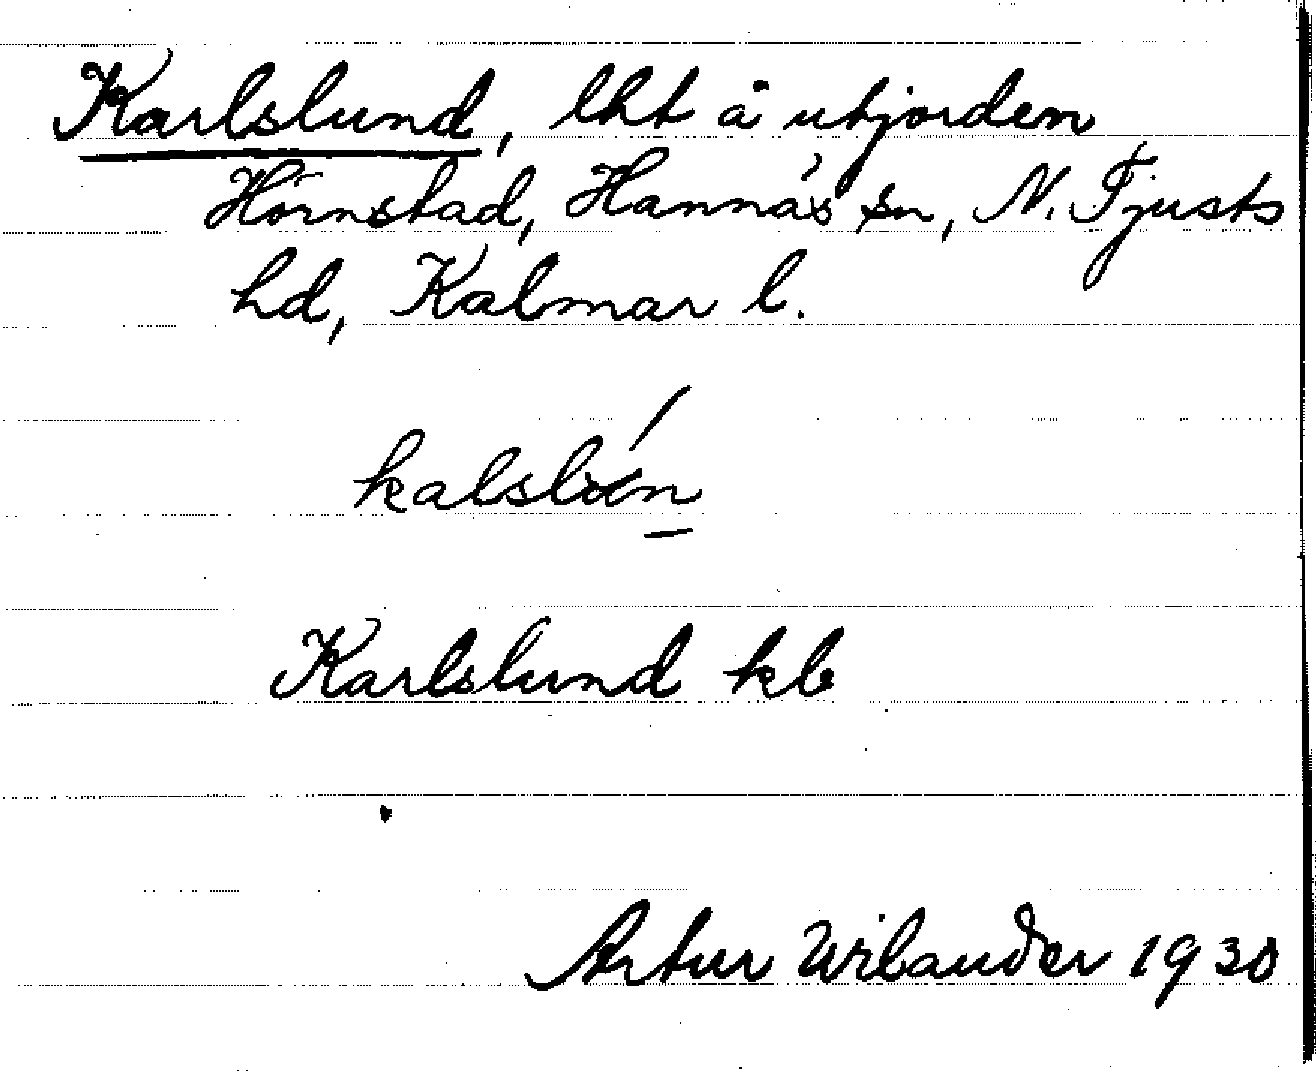 Karlslund, lht å utjorden
Hörnstad, Hannäs sn, N. Tjusts
hd, Kalmar l.
kalslún
Karlslund kb
Artur Wilander 1930